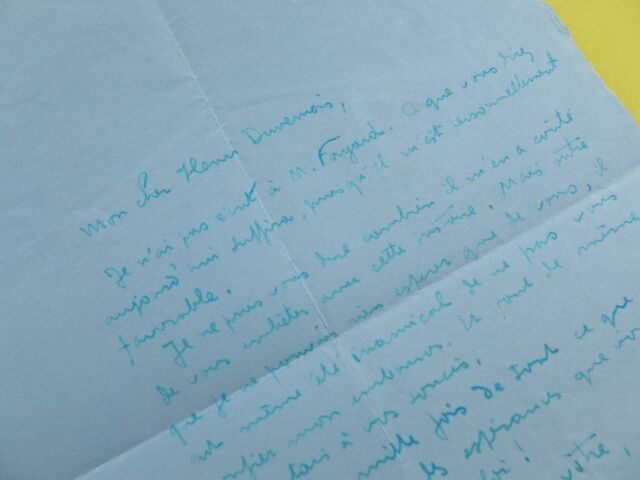 Mon cher Henri Duvernois,
Je n'ai pas écrit à M. Fayard. Ce que vous lirez
aujourd'hui suffira, puisqu'il m'est personnellement
favorable.
Je ne puis vous dire combien il m'en a coûté
de vous embêter avec cette histoire. Mais outre
que je ne pouvais rien espérer que de vous, il
eût même été inamical de ne pas vous
confier mon embarras. Et tout de même
tais à vos soucis,
mille fois de tout ce que
les espérances que vo
!
vôtre,